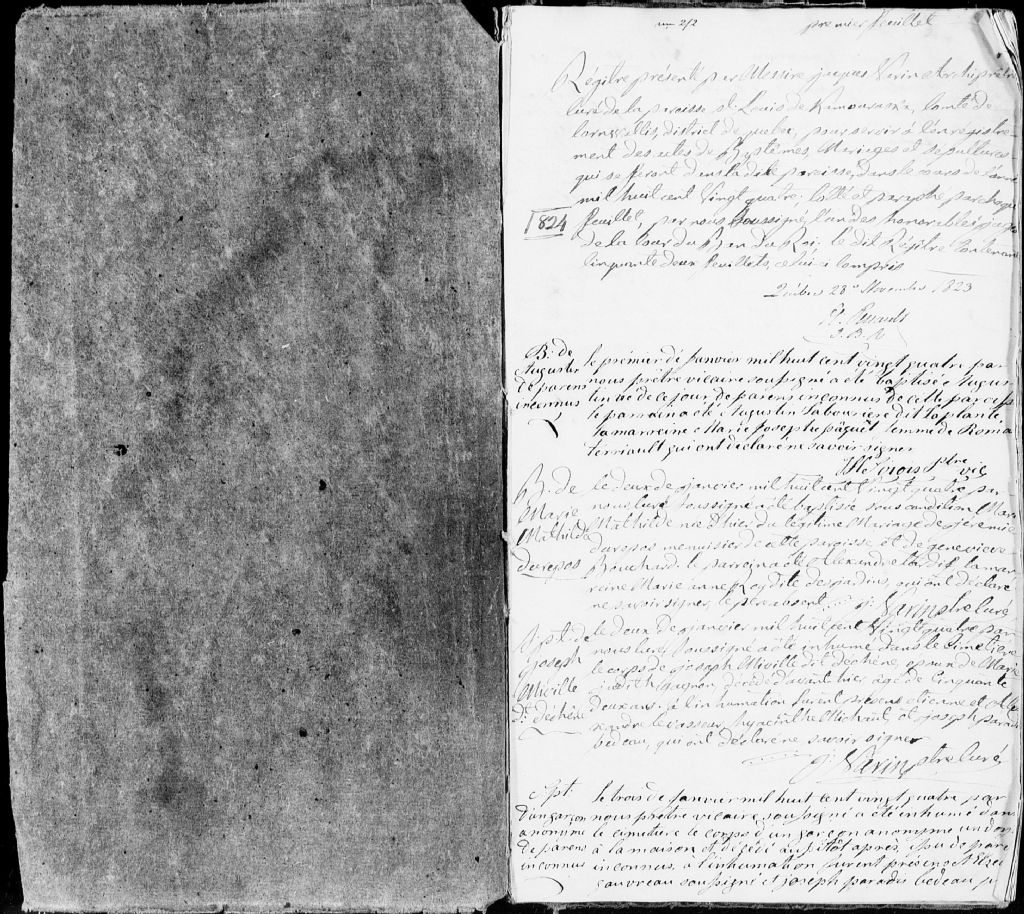 premier feuillet
Régitre présenté par Messire jaques Varin Archiprêtre
curé de la paroisse st Louis de Kamouraska, Comté de
Cornwallis, district de quebec, pour servir à l'enrégistre-
ment des actes de Baptêmes, Mariages et sépultures
qui se feront dans la dite paroisse, dans le cours de l'année
mil huit cent Vingt quatre; Cotté et paraphé par chaque
1824
feuillet, par nous soussigné, l'un des honorables juges
de la Cour du Banc du Roi, le dit Régitre Contenant
Cinquante deux feuillets, celui ci compris
Québec 28 Novembre 1823
B. de
Augustin
de parens
inconnus
le prémier de janvier mil huit cent vingt quatre par
nous prêtre vicaire soussigné a été baptisé Augus-
tin né de ce jour de parens inconnus de cette paroisse
le parrain a été Augustin Labourière dit Laplante
la marreine Marie Josephe pâquêt femme de Romin
terriault qui ont déclaré ne savoir signer
Ptre vic
B. de
Marie
Mathilde
durepos
le deux de janvier mil huit cent Vingt quatre par
nous Curé soussigné a été baptisée sous condition Marie
Mathilde née d'hier du légitime Mariage de jérémie
durepos menuisier de cette paroisse et de genevieve
Bouchard. le parrein a été Alexandre tardif la mar-
reine Marie anne Roy dite desjardins, qui ont déclaré
ne savoir signer, le père absent
j: Varin ptre Curé
Spt. de
joseph
Miville
dt déchêne
le deux de janvier mil huit cent Vingt quatre par
nous Curé soussigné a été inhumé dans le Cimetière
le corps de joseph Miville dit dechène, epoux de Marie
judith Gagnon, décédé d'avant hier âgé de Cinquante
deux ans. à l'inhumation furent présens etienne et Ale-
xandre levasseur, hyacinthe Michaut et joseph paradis
bedeau, qui ont déclaré ne savoir signer
j: Varin ptre Curé
Spt.
d'un garçon
anonyme
de parens
inconnus
le trois de janvier mil huit cent vingt quatre par
nous prêtre vicaire soussigné a été inhumé dans
le cimetière le corps d'un garçon anonyme ondoyé
à la maison et décédé aussitôt après, issu de parens
inconnus, à l'inhumation furent présens
Gauvreau soussigné et joseph paradis bedeau